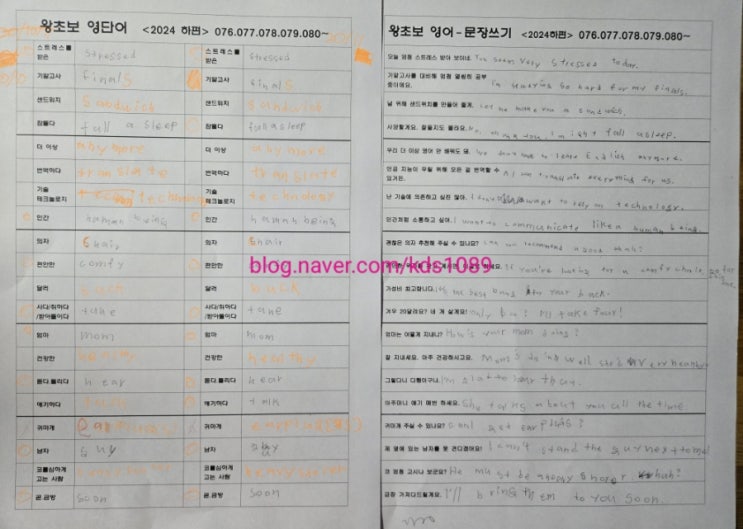 왕초보 영단어 <2024 하편> 076.077.078.079.080~
스트레스를 받은 stressed 스트레스를 받은 stressed
기말고사 finals 기말고사 finals
샌드위치 sandwich 샌드위치 sandwich
잠들다 fall a sleep 잠들다 fall a sleep
더 이상 anymore 더 이상 anymore
번역하다 translate 번역하다 translate
기술 테크놀로지 기술 테크놀로지 technology
인간 human being 인간 human being
의자 chair 의자 chair
편안한 comfy 편안한
달러 buck 달러 buck
사다/취하다/받아들이다 take 사다/취하다/받아들이다 take
엄마 mom 엄마 mom
건강한 healthy 건강한 healthy
듣다.들리다 hear 듣다.들리다 hear
얘기하다 talk 얘기하다 talk
귀마개 귀마개
남자 guy 남자 guy
코를심하게 고는 사람 코를심하게 고는 사람 heavy
곧.금방 soon 곧.금방 soon
blog.naver.com/kds1089
왕초보 영어-문장쓰기 <2024하편> 076.077.078.079.080~
오늘 엄청 스트레스 받아 보이네. You seem very stressed today.
기말고사를 대비해 엄청 열심히 공부 중이에요. I'm studying so hard for my finals.
날 위해 샌드위치를 만들어 줄게. Let me make you a sandwich.
사양할게요. 잠들지도 몰라요. I might fall asleep.
우리 더 이상 영어 안 배워도 돼. We don't have to learn English anymore.
인공 지능이 우릴 위해 모든 걸 번역할 수 있거든. AI can translate everything for us.
난 기술에 의존하고 싶진 않아. I don't want to rely on technology.
인간처럼 소통하고 싶어. I want to communicate like a human being.
괜찮은 의자 추천해 주실 수 있나요? Can you recommend a good chair?
If you're looking for a comfy chair, go for this one.
가성비 최고랍니다. It's the best bang for your buck.
겨우 20달러요? 네 개 살게요! I'll take four!
엄마는 어떻게 지내니? How's your mom doing?
잘 지내세요. 아주 건강하시고요. Mom's doing well she's very healthy
그렇다니 다행이구나. I'm glad to hear that.
어주머니 얘기 매번 하세요. She talks about you all the time
귀마개 주실 수 있나요? Can I get earplugs?
제 옆에 있는 남자를 못 견디겠어요! I can't stand the guy next to me!
He must be a heavy snorer huh?
금방 가져다드릴게요. I'll bring them to you soon.